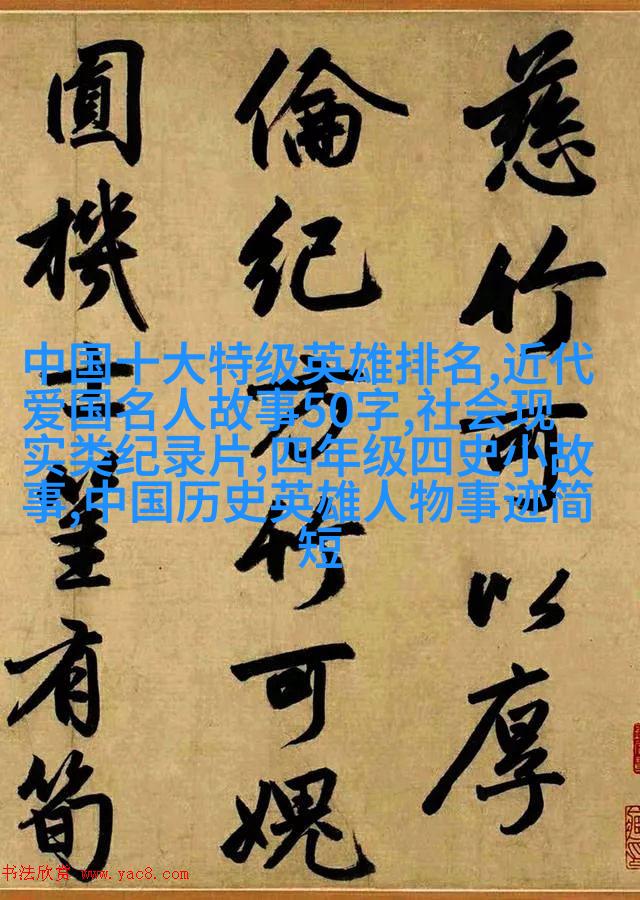 慈竹可以厚
倫紀方竹可愧
圓機士筀有筍
中国十大特级英雄排名,近代
爱国名人故事50字,社会现
实类纪录片,四年级四史小故
事,中国历史英雄人物事迹简
短
书法欣赏 www.yac8.com